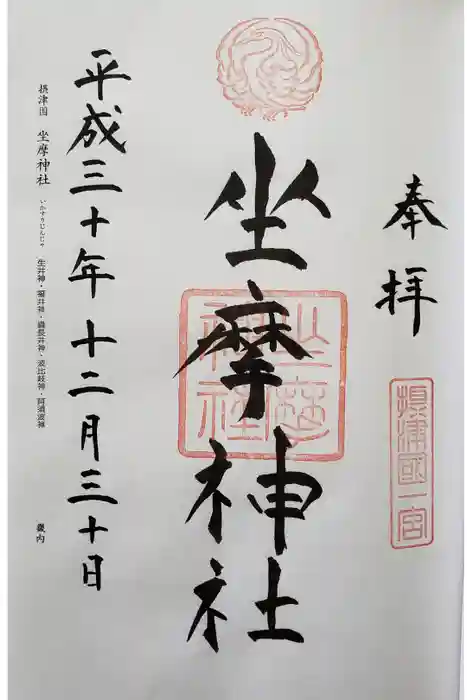 奉拝
摂津國一宮
坐摩神社
坐摩神社
平成三十年十二月三十日
摂津国 坐摩神社 いかすりじんじゃ 生井神・福井神・綱長井神・波比岐神・阿須波神 畿内